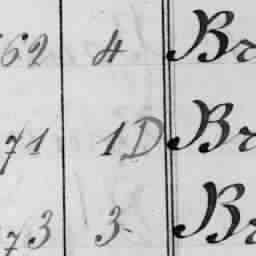 62 4 Br
71 1D Br
73 3 Br